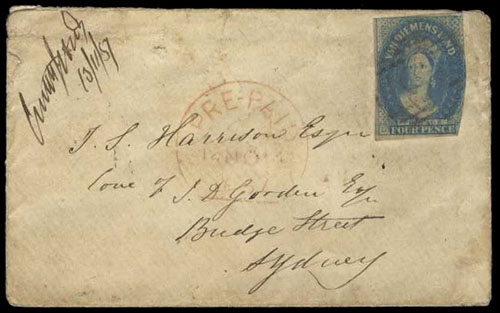 13/11/57
VAN DIEMENS LAND
FOUR PENCE
PRE-PAI
J. S. Harrison Esqre
Care of J. D. Gordon Esq
Bridge Street
Sydney